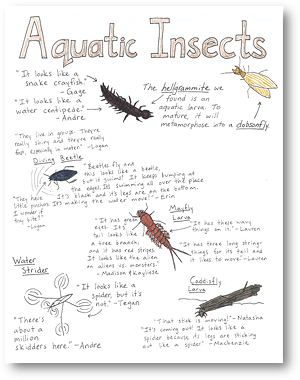 Aquatic Insects
"It looks like a
snake crayfish."
- Gage
"It looks like a
water centipede."
- Andre
The hellgrammite we
found is an
aquatic larva. To
mature, it will
metamorphose into a dobsonfly.
"They live in groups. They're
really shiny and they're really
fast, especially in water" -Logan
Diving Beetle
"Beetles fly and
this looks like a beetle,
but it swims! It keeps bumping at
the edges. It's swimming all over the place.
It's black and its legs are on the bottom.
It's making the water move!" - Erin
"They have
little pinchers.
I wonder if
they bite?"
-Logan
Mayfly
Larva
"It has green
eyes. It's
tail looks like
a tree branch,
and it has red stripes.
It looks like the alien
on aliens vs. monsters."
- Madison & Kayliese
"It has these wavy
things on it." -Lauren
"It has three long string-
things for its tail and
it likes to move" -Lauren
Water
Strider
"It looks like a
spider, but it's
not." -Tegan
"There's
about a
million
skidders here." -Andre
Caddisfly
Larva
"That stick is moving!" -Natasha
"It's coming out! It looks like a
spider because its legs are sticking
out like a spider" -Mackenzie